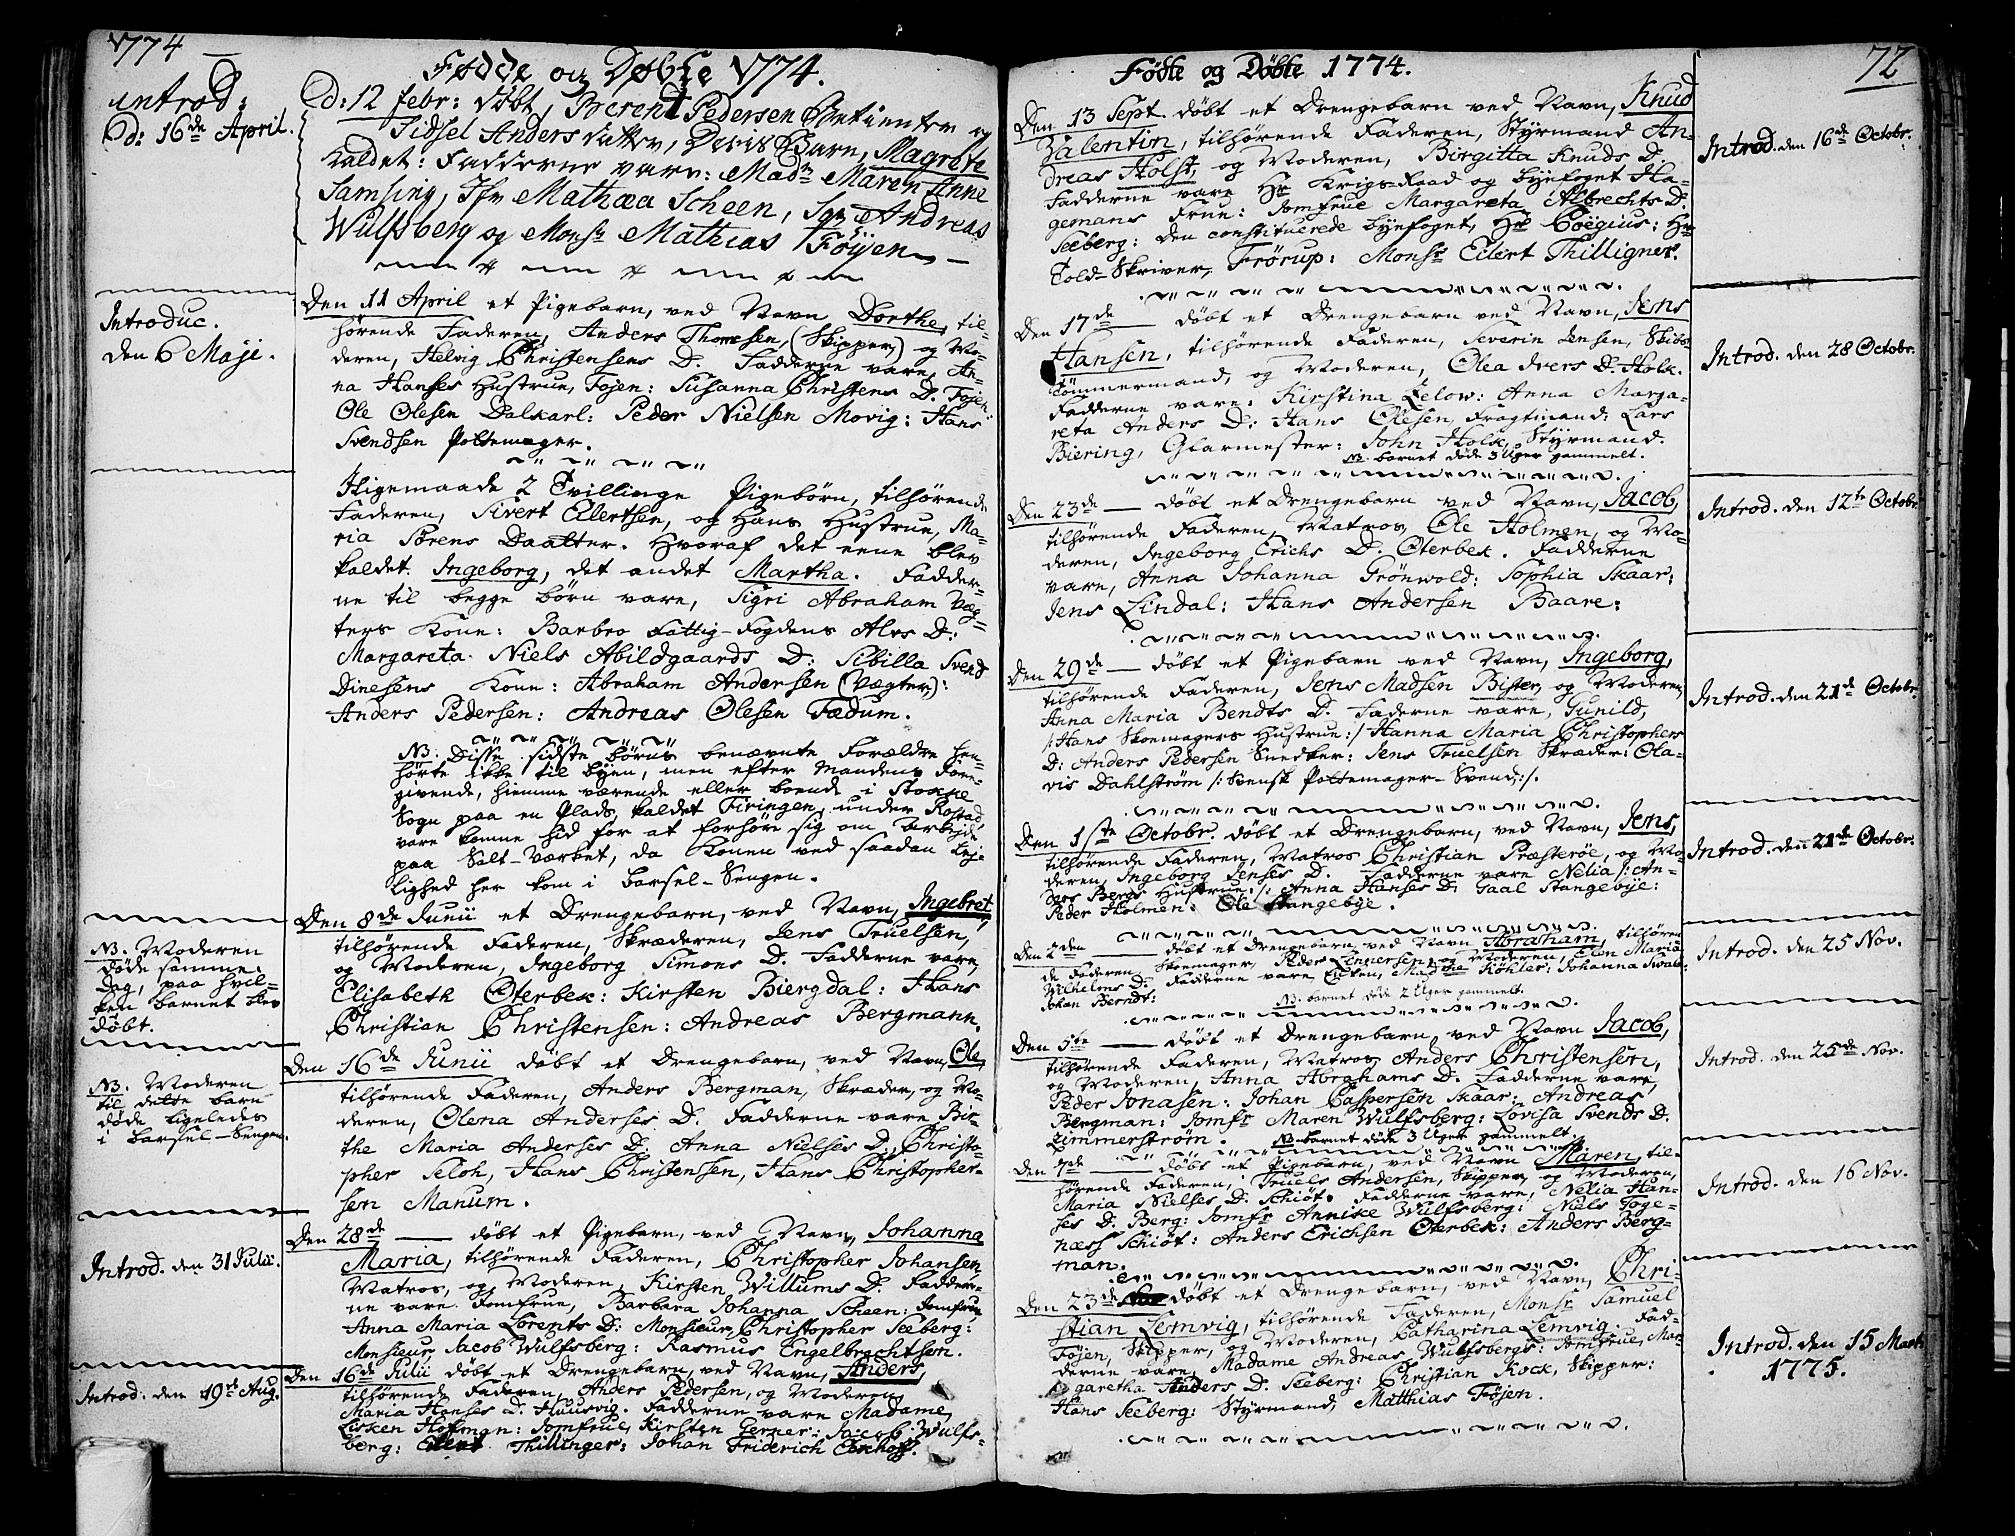 1774
Fødde og Døbte 1774.
introd:
D: 16de April.
D: 12 febr: døbt, Berent Pedersen Betienter og
Sidsel Anders datter, Deris Barn, Magrete
kaldet: Fadderne vare: Madm Maren Anne
Samsing, Jfr Mathæa Scheen, Sgr Andreas
Wulfsberg og Monsr Mathias Føyen
Introduc.
den 6 Maje.
Den 11 April et Pigebarn, ved Navn Dorthe, til-
hørende Faderen, Anders Thomesen, (Skipper,) og Mo-
deren, Helvig Christensens D. Fadderne vare, An-
na Hanses Hustrue, Føjen: Susanna Christens D. Føjen:
Ole Olesen Dalkarl: Peder Nielsen Movig: Hans
Svendsen Pottemager.
Iligemaade 2 Tvillinge Pigebørn, tilhørende
Faderen, Sivert Eilertsen, og Hans Hustrue, Ma-
ria Sørens Daatter. Hvoraf det eene blev
kaldet Ingeborg, det andet Martha. Fadder-
ne til begge børn vare, Sigri Abraham Væg-
ters Kone: Barbro Fattig-Fogdens Alvs D:
Margareta Niels Abildgaards D: Sibilla Svend
Dinesens Kone: Abraham Andersen (Vægter):
Anders Pedersen: Andreas Olesen Fædum.
NB. Disse sidste børns benævnte Forældre hen-
hørte ikke til byen, men efter Mandens Fore-
givende, hiemme værende eller boende i Stokke
Sogn paa en Plads, kaldet Firingen, under Rostad,
vare komne hid for at forhøre sig om Arbejde
paa Salt-Værket, da Konen ved saadan Leje
lighed her kom i barsel-Sengen.
NB. Moderen
døde samme
Dag, paa hvil-
ken barnet blev
døbt.
Den 8de Junii et Drengebarn, ved Navn, Ingebret,
tilhørende Faderen, Skræderen, Jens Truelsen,
og Moderen, Ingeborg Simons D. Fadderne vare,
Elisabeth Oterbek: Kirsten Biergdal: Hans
Christian Christensen: Andreas Bergmann.
NB. Moderen
til dette barn
døde ligeledes
i barsel-Sengen.
Den 16de Junii døbt et Drengebarn, ved Navn, Ole,
tilhørende Faderen, Anders Bergman, Skræder, og Mo-
deren, Olena Anderses D. Fadderne vare Bir-
the Maria Anderses D, Anna Nielses D, Christo-
pher Seloh, Hans Christenssen, Hans Christopher-
sen Manum.
Introd. den 31 Julii.
Den 28de døbt et Pigebarn, ved Navn, Johanna
Maria, tilhørende Faderen, Christopher Johansen
Matros, og Moderen, Kirsten Willums D. Fadder-
ne vare Jomfrue, Barbara Johanna Scheen: Jomfrue
Anna Maria Lorents D: Monsieur, Christopher Seeberg:
Monsieur, Jacob Wulfsberg: Rasmus Engelbrechtsen.
Introd. den 19de Aug.
Den 16de Julii døbt et Drengebarn, ved Navn, Anders,
tilhørende Faderen, Anders Pedersen, og Moderen,
Maria Hanses D. Huusvig. Fadderne vare Madame,
Lisken Hofman: Jomfrue, Kirsten Gerner: Jacob Wulfs-
berg: Eilert Thillinger: Johan Friderich
72
Fødte og Døbte 1774.
Den 13 Sept. døbt et Drengebarn ved Navn, Knud
Valentin, tilhørende Faderen, Styrmand An-
dreas Holst, og Moderen, Birgitta Knuds D.
Fadderne vare Hr Krigs-Raad og byefoget Ha-
gemans Frue: Jomfrue Margareta Albrechts D.
Seeberg: den constituerede byefoget, Hr Coëgius: Hr
Told-Skriver, Frørup: Monsr Eilert Thilligner.
Introd. den 16de Octobr.
Den 17de døbt et Drengebarn ved Navn, Jens
Hansen, tilhørende Faderen, Severin Jensen, Skibs-
Tømmermand, og Moderen, Olea Ivers D. Holk.
Fadderne vare: Kirstina Zelow: Anna Marga-
reta Anders D: Hans Olesen, Fragtmand: Lars
Biering, Glarmester: John Holk, Styrmand.
NB. barnet døde 3 Uger gammelt.
Introd. den 28 Octobr.
Den 23de døbt et Drengebarn ved Navn, Jacob,
tilhørende Faderen, Matros, Ole Holmen, og Mo-
deren, Ingeborg Erichs D. Oterbek. Fadderne
vare, Anna Johanna Grönwold: Sophia Skaar:
Jens Lindal: Hans Andersen Baare:
Introd. den 12te Octobr.
Den 29de døbt et Pigebarn ved Navn, Ingeborg,
tilhørende Faderen, Jens Madsen Bister, og Moderen,
Anna Maria Bendts D. Fadderne vare, Gunild,
/: Hans Skoemagers Hustrue :/ Hanna Maria Christophers
D: Anders Pedersen Snedker: Jens Truelsen Skræder: Ola-
vis Dahlstrøm /: Svensk Pottemager-Svend :/.
Introd. den 21de Octobr.
Den 1ste Octobr. døbt et Drengebarn, ved Navn, Jens,
tilhørende Faderen, Matros Christian Præsterøe, og Mo-
deren, Ingeborg Jenses D. Fadderne vare Nelia /: An-
ders Bergs Hustrue :/: Anna Hanses D: Gaal Stangebye:
Peder Holmen: Ole Stangebye.
Introd. den 21de Octobr.
Den 2den døbt et Drengebarn ved Navn Abraham, tilhøren
de Faderen, Skoemager, Peder Zinnersen, og Moderen, Elen Maria
Wilhelms D. Fadderne vare Lisken, Madme Köhler: Johanna
Johan Berndt:
NB. barnet døde 2 Uger gammelt.
Introd. den 25 Nov.
Den 5te døbt et Drengebarn, ved Navn Jacob,
tilhørende Faderen, Matros, Anders Christensen,
og Moderen, Anna Abrahams D. Fadderne vare,
Peder Jonasen: Johan Caspersen Skaar: Andreas
Bergman: Jomfr Maren Wulfsberg: Lovisa Svends D.
Zimmerstrøm. NB. barnet døde 3 Uger gammelt.
Introd. den 25de Nov.
Den 7de døbt et Pigebarn, ved Navn Maren, til-
hørende Faderen, Truels Andersen, Skipper, og Moderen,
Maria Nielses D. Schiöt. Fadderne vare, Nelia Han-
ses D. Berg: Jomfr Annike Wulfsberg: Niels Toge-
næss Schiöt: Anders Erichsen Oterbek: Anders Berg-
man.
Introd. den 16 Nov.
Den 23de døbt et Drengebarn, ved Navn, Chri-
stian Lemvig, tilhørende Faderen, Monsr Samuel
Føjen, Skipper, og Moderen, Catharina Lemvig. Fad-
derne vare, Madame Andreas Wulfsbergs: Jomfrue, Mar-
garetha Anders D. Seeberg: Christian Kock, Skipper:
Hans Seeberg: Styrmand, Matthias Føjen.
Introd. den 15 Marti
1775.